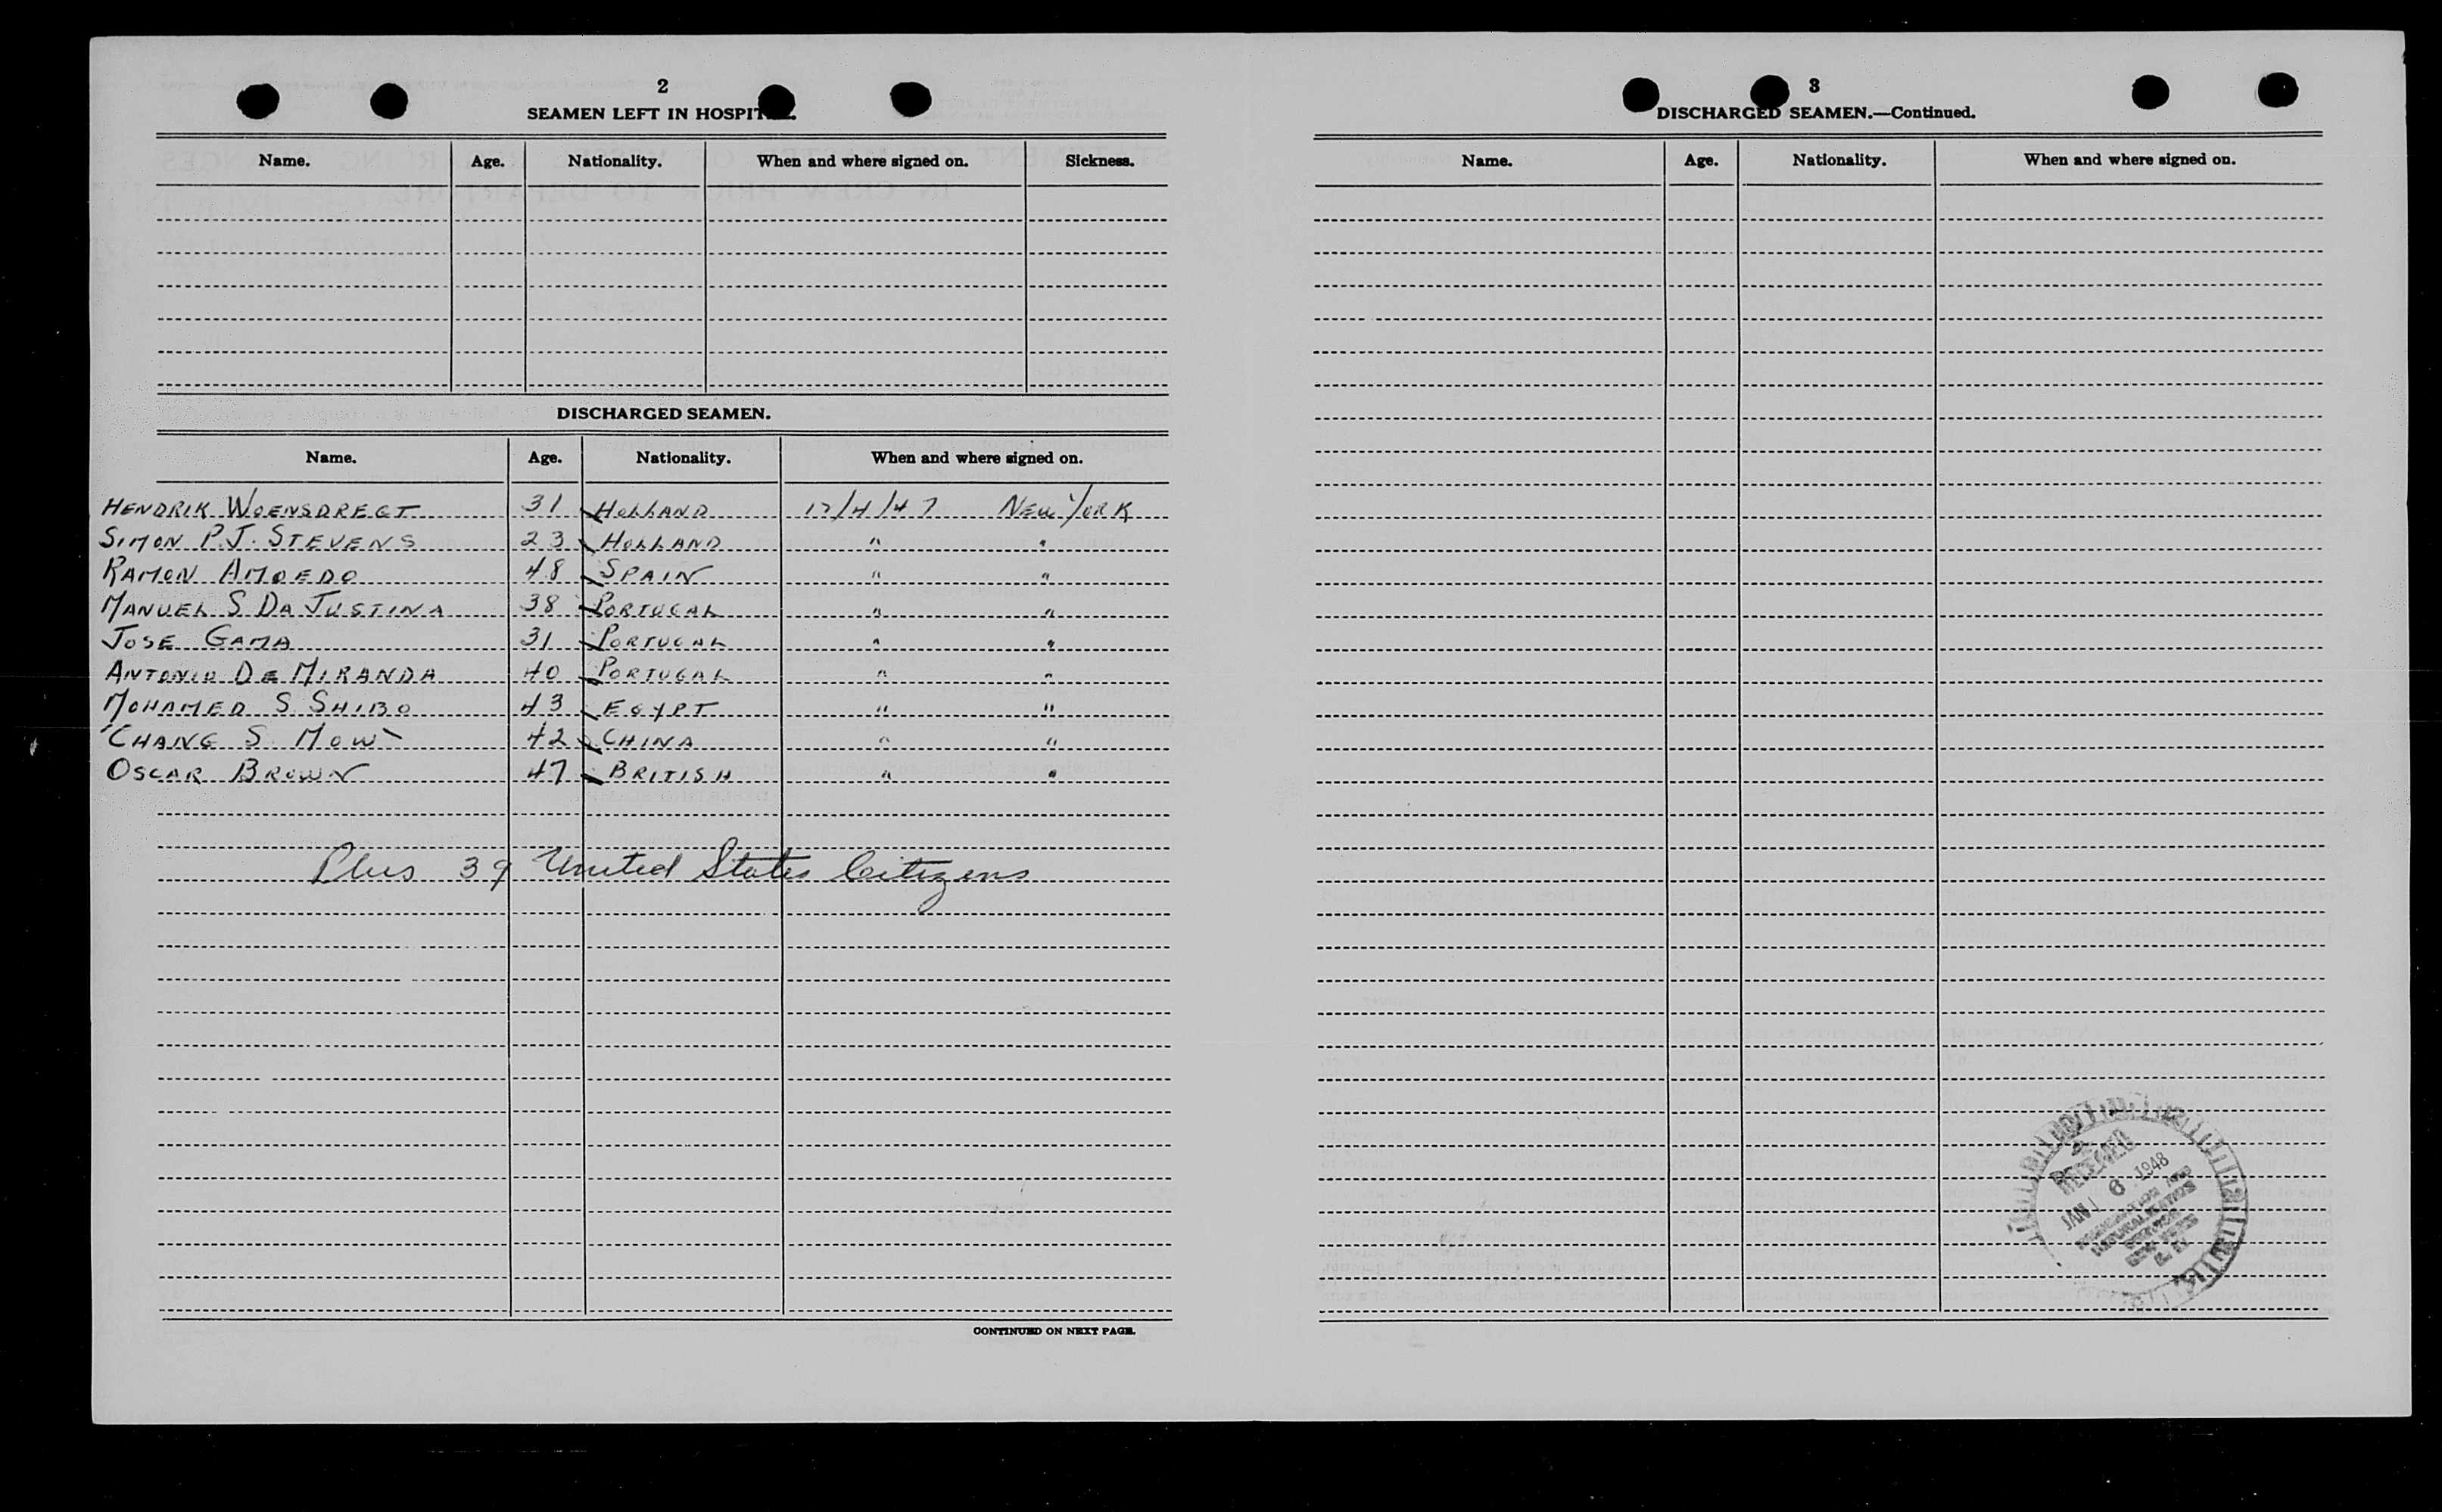 2
SEAMEN LEFT IN HOSPIT
Name. Age. Nationality. When and where signed on. Sickness.
DISCHARGED SEAMEN.
Name. Age. Nationality. When and where signed on.
HENDRIK WOENSDREGT 31 HOLLAND 12/4/47 NEW YORK
SIMON P.J. STEVENS 23 HOLLAND " "
RAMON AMOEDO 48 SPAIN " "
MANUEL S. DA JUSTINA 38 PORTUGAL " "
JOSE GAMA 31 PORTUGAL " "
ANTONIO DE MIRANDA 40 PORTUGAL " "
MOHAMED S. SHIBO 43 EGYPT " "
CHANG S. MOW 42 CHINA " "
OSCAR BROWN 47 BRITISH " "
Plus 39 United States Citizens
CONTINUED ON NEXT PAGE.
3
DISCHARGED SEAMEN.—Continued.
Name. Age. Nationality. When and where signed on.
RECEIVED
JAN 6 1948
IMMIGRATION AND
NATURALIZATION
SERVICE